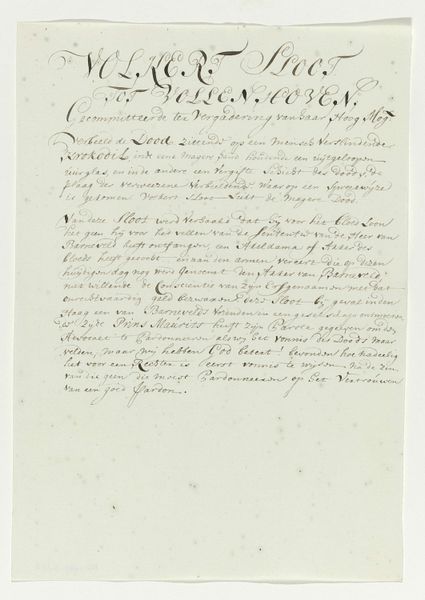 VOLKERT SLOOT
TOT VOLLENHOVEN.
Gecommitteerde te Vergadering van haar Hoog Mog.
Verbeeld de Dood, zittende op een Mensch Verslindende
Krokodil, in de eene magere hand houdende een uijtgeloopen
uurglas, en in de andere een Vergifte Schicht des doods, de
plaag der
is genomen Volkert Sloot Lijkt de Magere Dood.
Van deze Sloot werd Verhaald dat hij voor het bloed Loon
het geen hij voor het vellen van de Sententie van de Heer van
Barneveld heeft ontfangen, een Akeldama of Akker des
bloeds heeft gecogt en aan den armen vereert die op dezen
huijdigen dag nog werd Genoemt den Akker van Barneveld
niet willende de Conscientie van zijn Erfgenaamen met dat
onrechtvaardig geld bezwaaren. deze Sloot bij geval in den
Haag een van Barnevelds Vrienden in een geselschap ontmoetende
zijde Prins Mauritz heeft zijn Parole gegeven om den
Advocaet te Pardonneeren als wij het Vonnis des Doods maar
velden, maar wij hebben God betert! bevonden hoe nadeelig
het voor een Rechter is eerst Vonnis te wijzen na de zin
van die geen die moest Pardonneeren op het Vertrouwen
van een goed Pardon.